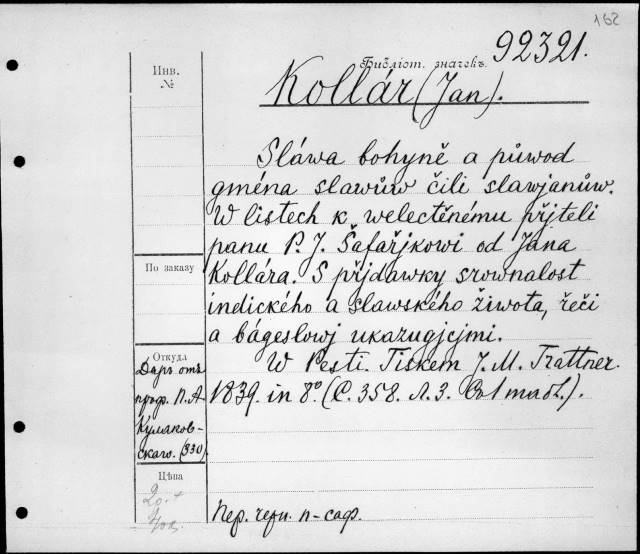 162
92321.
Библіот. значекъ.
Kollár (Jan).
Инв.
№
Sláwa bohyně a půwod
gména slawůw čili slawjanůw.
W listech k welectěnému přjteli
panu P. J. Šafařjkowi od Jana
Kollára. S přjdawky srownalost
indického a slawského žiwota, řeči
a bágeslowj ukazugjcjmi.
W Pesti. Tiskem J. M. Trattner.
1839. in 8º (C. 358. л. 3. Съ 1 табл.).
По заказу
Откуда
Даръ отъ
проф. П. А.
Кулаков-
скаго. (330)
Цѣна
20.+
Пер. черн. п-саф.